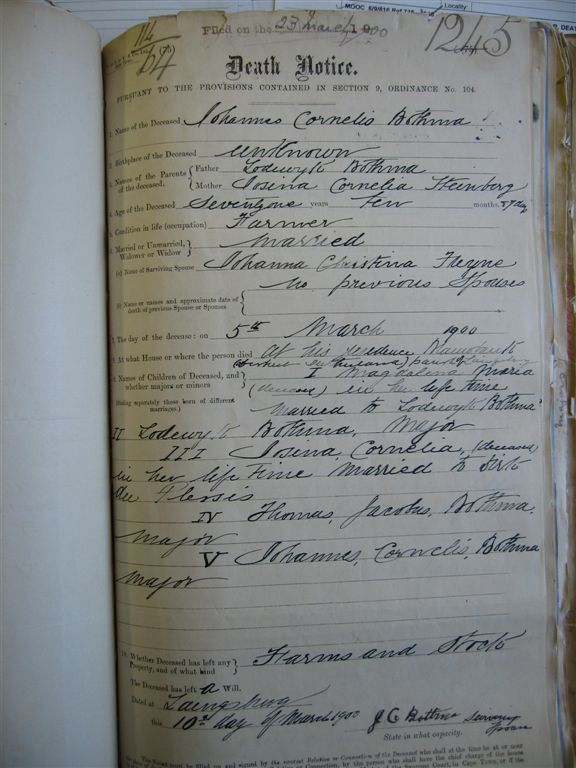 MOOC 6/9/816 Ref
Locality
Filed on the 23 March 1900
1245
114
64
Death Notice.
PURSUANT TO THE PROVISIONS CONTAINED IN SECTION 9, ORDINANCE No. 104.
1. Name of the Deceased Johannes Cornelis Bothma
2. Birthplace of the Deceased unknown
3. Names of the Parents of the deceased. Father Lodewyk Bothma
Mother Josina Cornelia Steenberg
4. Age of the Deceased Seventyone years Ten months. 27 days
5. Condition in life (occupation) Farmer
6. Married or Unmarried, Widower or Widow married
(a) Name of Surviving Spouse Johanna Christina
(b) Name or names and approximate date of death of previous Spouse or Spouses no previous Spouses
7. The day of the decease: on 5th March 1900
8. At what House or where the person died At his residence
9. Names of Children of Deceased, and whether majors or minors I Magdalena Maria
(Stating separately those born of different marriages.) (deceased) in her life time
married to Lodewyk Bothma
II Lodewyk Bothma, Major
III Josina, Cornelia, (deceased)
in her life time married to Dirk
IV Thomas, Jacobus, Bothma,
major
V Johannes, Cornelis, Bothma
major
10. Whether Deceased has left any Property, and of what kind Farms and Stock
The Deceased has left a Will.
Dated at Laingsburg
this 10th day of March 1900 J C Bothma Surviving Spouse
State in what capacity.